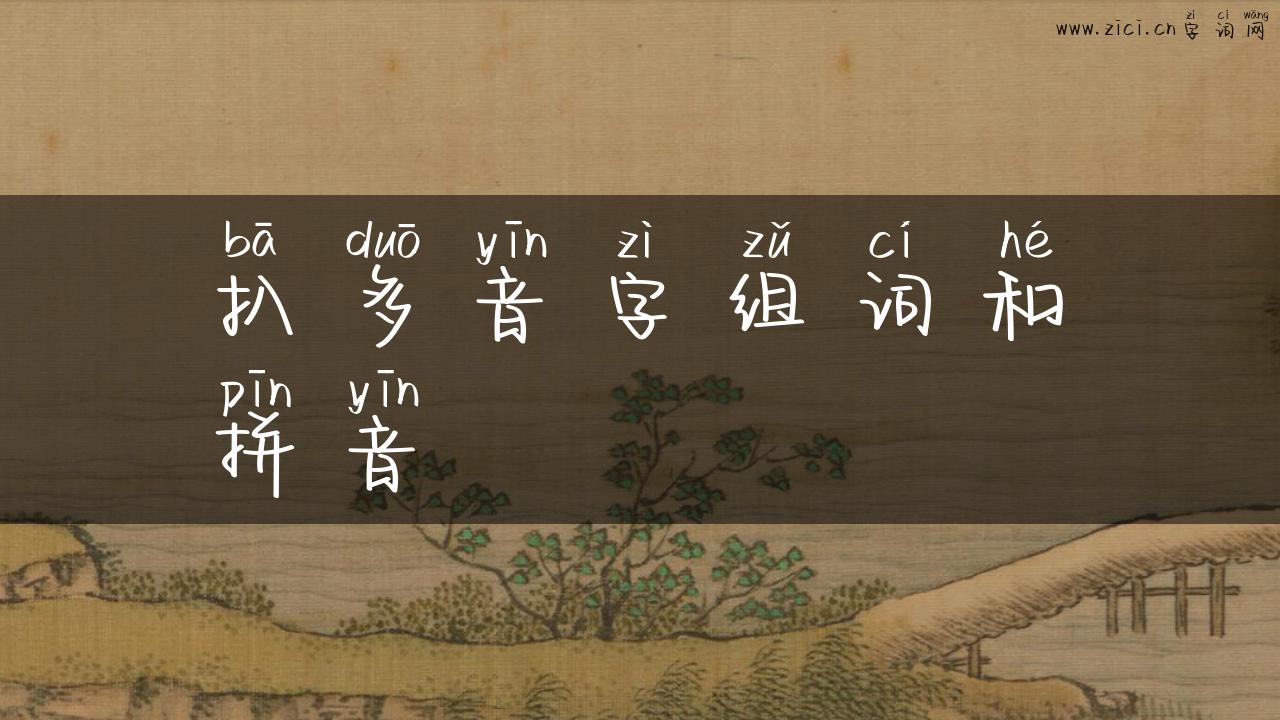 zì cí wǎng
www.zici.cn 字词网
bā duō yīn zì zǔ cí hé
扒多音字组词和
pīn yīn
拼音